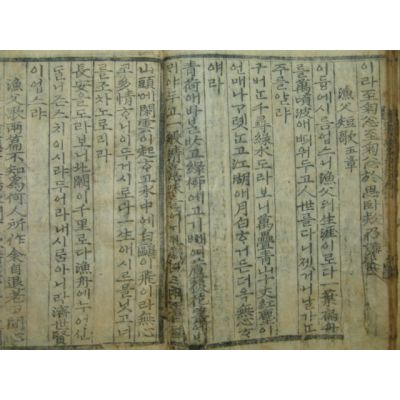 이라至匊忩至匊忩於思臥
漁父短歌五章
이듕에시름업스니漁父의生涯이로다一葉扁舟
를萬頃波애띄워두고人世를다니젯거니날가ᄂᆞᆫ
주를알랴
구버ᄂᆞᆫ千尋綠水도라보니萬疊靑山十丈紅塵이
언매나ᄀᆞ롓ᄂᆞᆫ고江湖애月白ᄒᆞ거든더옥無心ᄒᆞ
얘라
靑荷애바ᄇᆞᆯᄡᅡ고綠柳에고기ᄢᅦ여蘆荻花叢애
두고一般淸意味를
山頭에閒雲이起ᄒᆞ고水中에白鷗이飛이라無心
코多情ᄒᆞ니이두거시로다一生애시르믈닛고너
를조차노로리라
長安을도라보니北闕이千里로다漁舟에누어신
ᄃᆞᆯ니즌스치이시랴두어라내시름아니라濟世賢
이업스랴
漁父歌兩篇不知爲何人所作余自退老田間心